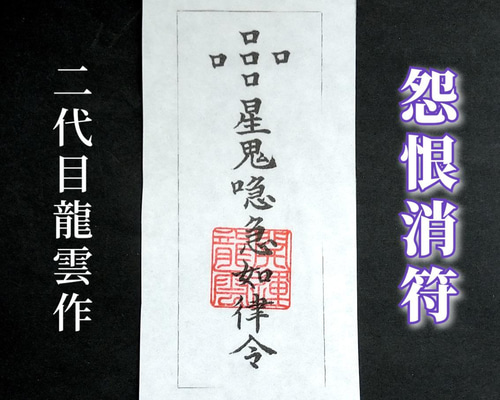 怨恨消符
口
口口口
口
星鬼喼急如律令
開運
龍雲
二代目龍雲作